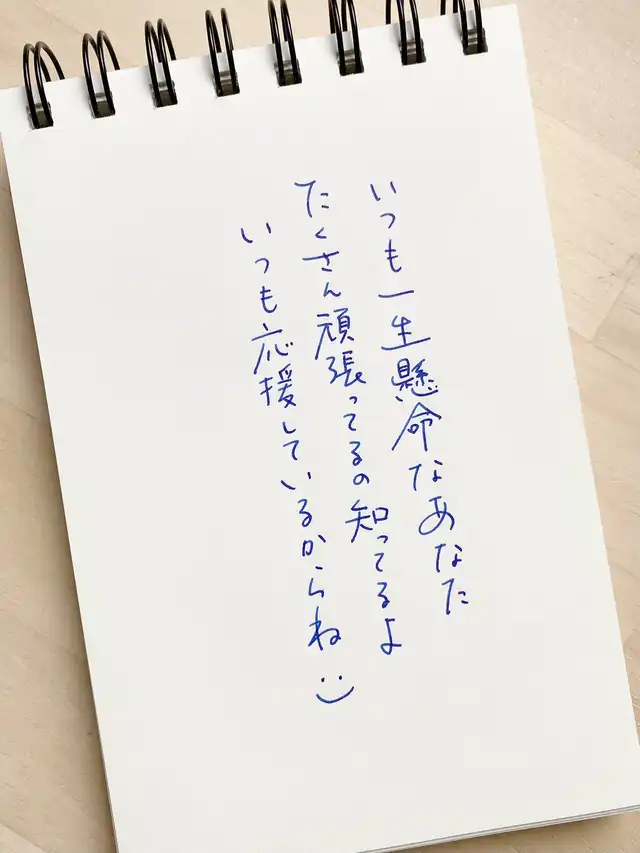 いつも一生懸命なあなた
たくさん頑張ってるの知ってるよ
いつも応援しているからね